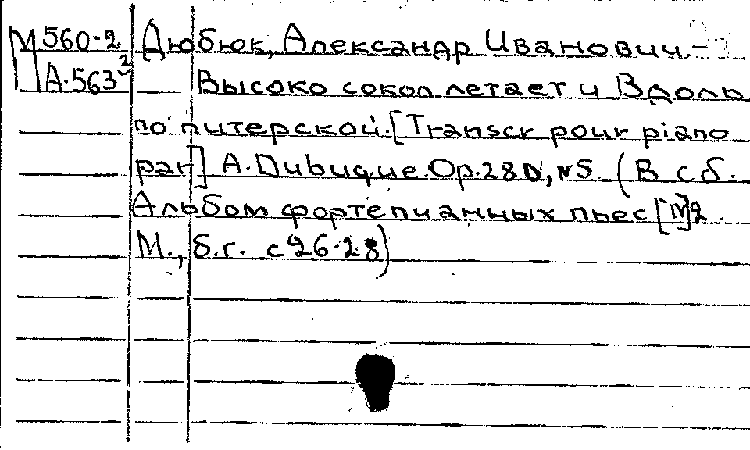 М560-2 Дюбюк, Александр Иванович.-
А-563² Высоко сокол летает и Вдоль
по питерской. [Transcr pour piano
par] A. Dubuque. Op.280, №5. (В сб.
Альбом фортепианных пьес [№]2.
М., б.г. с 26-28)